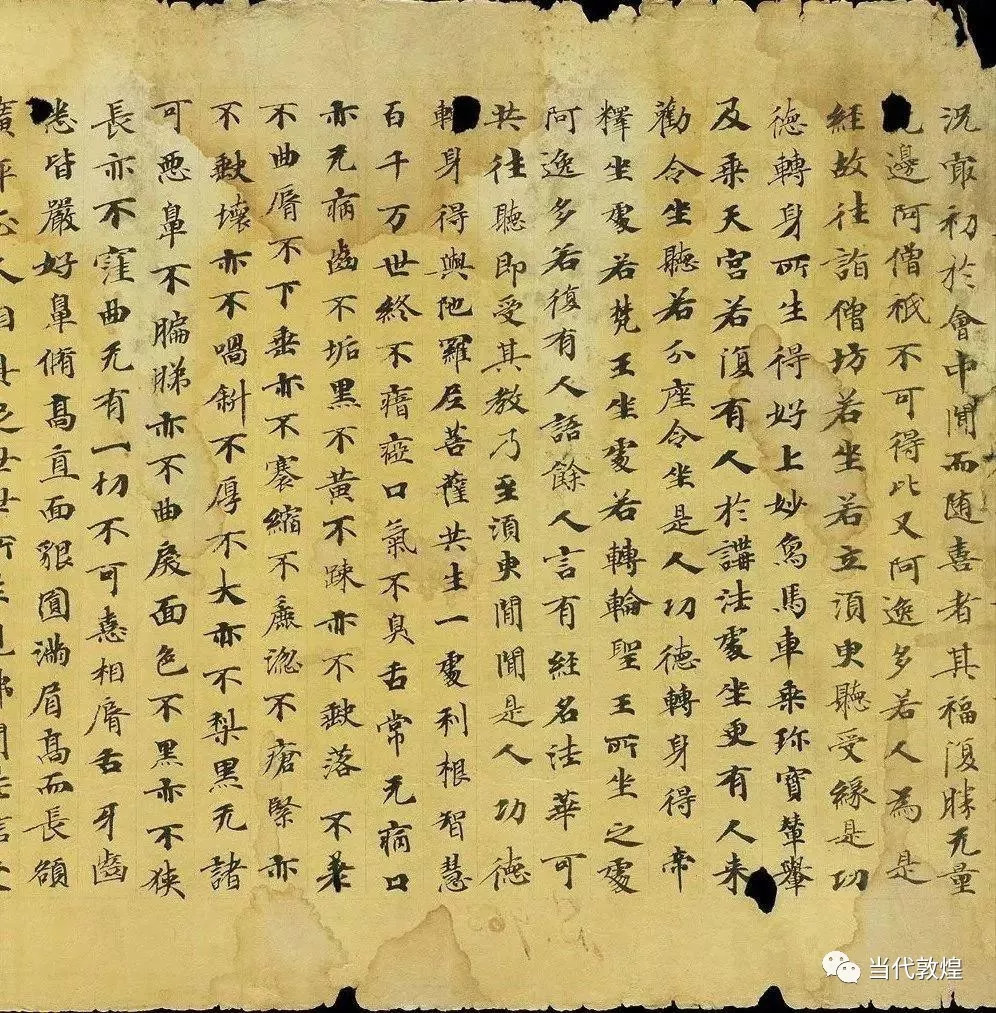 況冣初於會中聞而随喜者其福復勝无量
邊阿僧祇不可得比又阿逸多若人為是
経故往詣僧坊若坐若立須臾聽受緣是功
德轉身所生得好上妙烏馬車乗珎寶輦轝
及乗天宮若復有人於講法處坐更有人来
勸令坐聽若分座令坐是人功德轉身得帝
釋坐處若梵王坐處若轉輪聖王所坐之處
阿逸多若復有人語餘人言有経名法華可
共往聽即受其教乃至須臾間聞是人功德
轉身得與陁羅尼菩薩共生一處利根智慧
百千万世終不瘖瘂口氣不臭舌常无病口
亦无病齒不垢黑不黃不踈亦不缺落不差
不曲脣不下垂亦不褰縮不麁澁不瘡緊亦
不缺壞亦不喎斜不厚不大亦不梨黑无諸
可惡鼻不匾㔸亦不曲戾面色不黑亦不狹
長亦不窪曲无有一切不可憙相脣舌牙齒
悉皆嚴好鼻脩高直面貌圓滿眉高而長額
廣平正人相具足世世所生見佛聞法信受
当代敦煌